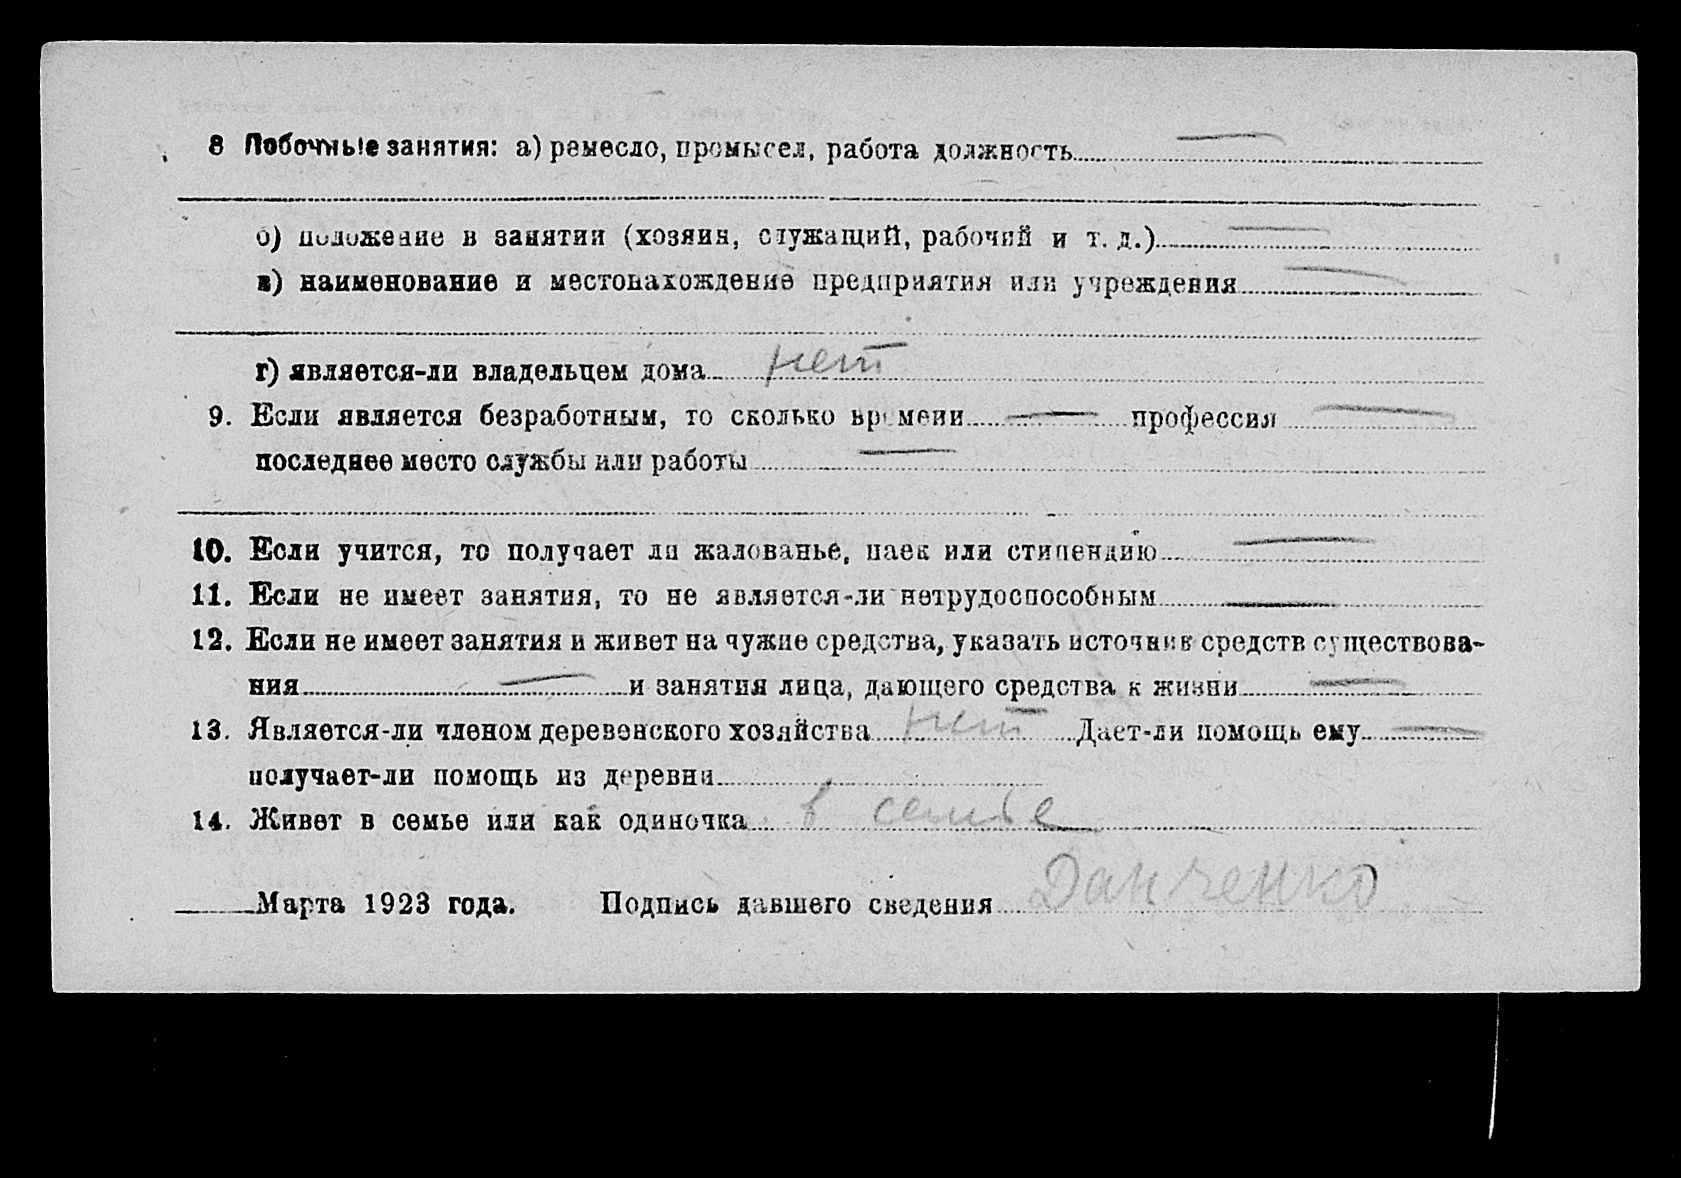 8 Побочные занятия: а) ремесло, промысел, работа должность —
б) положение в занятии (хозяин, служащий, рабочий и т. д.) —
в) наименование и местонахождение предприятия или учреждения —
г) является-ли владельцем дома нет
9. Если является безработным, то сколько времени — профессия —
последнее место службы или работы —
10. Если учится, то получает ли жалованье, паек или стипендию —
11. Если не имеет занятия, то не является-ли нетрудоспособным —
12. Если не имеет занятия и живет на чужие средства, указать источник средств существова-
ния — и занятия лица, дающего средства к жизни —
13. Является-ли членом деревенского хозяйства нет Дает-ли помощь ему —
получает-ли помощь из деревни
14. Живет в семье или как одиночка в семье
Марта 1923 года. Подпись давшего сведения Данченко